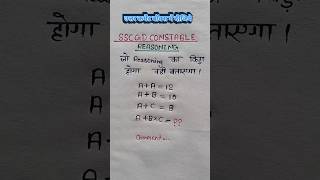 उत्तर कमेंट बॉक्स में दीजिये
SSC GD CONSTABLE
REASONING
जो Reasoning का किड़ा
होगा वही बताएगा।
A + A = 12
A + B = 18
A + C = 8
A + B × C = ??
Comment...
होगा
।